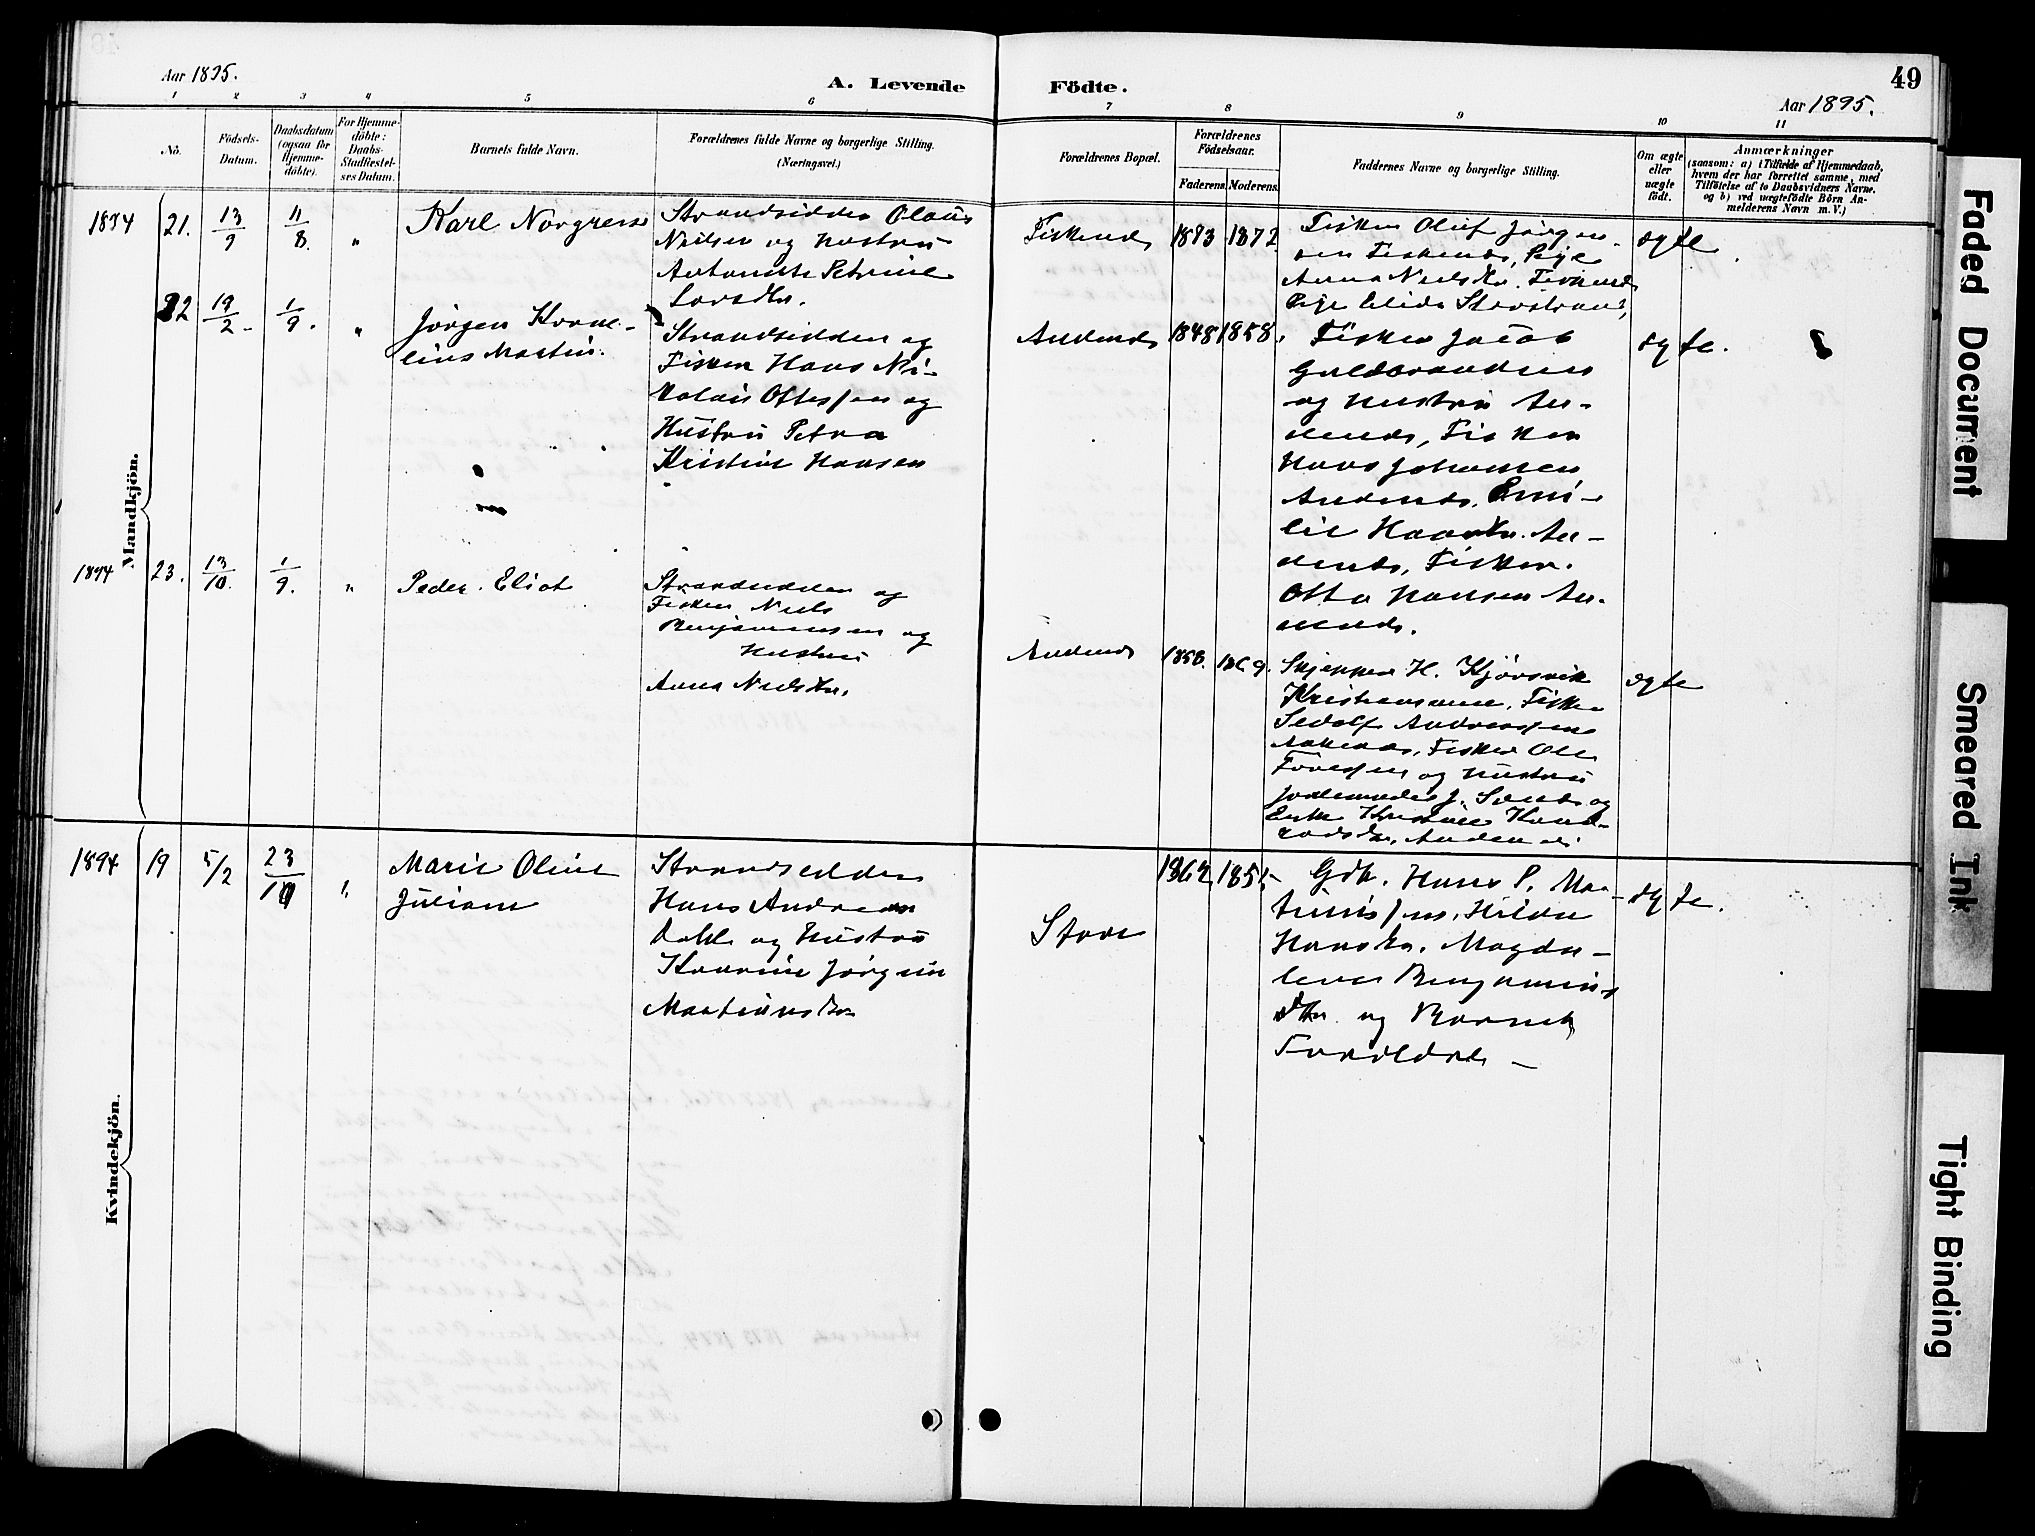 Aar 1895.
A. Levende
Födte.
49
Aar 1895.
1 2 3 4 5 6 7 8 9 10 11
No.
Födsels-
Datum.
Daabsdatum
(ogsaa for
Hjemme-
döbte).
For Hjemme-
döbte:
Daabs-
Stadfæstel-
ses Datum.
Barnets fulde Navn.
Forældrenes fulde Navne og borgerlige Stilling.
(Næringsvei.)
Forældrenes Bopæl.
Forældrenes
Födselsaar.
Faderens. Moderens.
Faddernes Navne og borgerlige Stilling.
Om ægte
eller
uægte
födt.
Anmærkninger
(saasom: a) i Tilfælde af Hjemmedaab,
hvem der har forrettet samme, med
Tilföielse af to Daabsvidners Navne.
og b) ved uægtefödte Börn An-
melderens Navn m. V.)
Mandkjön.
1894 21. 13/9 11/8. "
Karl Norgrens
Strandsidder Olaus
Nilsen og Hustru
Antonette Petrine
Larsdtr.
Fiskenes 1873 1872
Fisker Oluf Jörgen-
sen Fiskenes, Pige
Anna Nielsdtr. Fiskenes
Pige Elida
ægte
22 19/2 1/9. "
Jörgen Korne-
lius Martin.
Strandsidder og
Fisker Hans Ni-
kolai Ottessen og
Hustru Petra
Kristine Hansen
Andenes 1848 1858.
Fisker Jacob
Guldbrandsen
og Hustru An-
denes, Fisker
Hans Johansen
Andenes, Emi-
lie Hansdtr. An-
denes, Fisker
Otto Hansen An-
denes.
ægte.
1894 23. 13/10. 1/9. "
Peder Eliot
Strandsidder og
Fisker Niels
Benjaminsen og
Hustru
Anna Nielsdtr.
Andenes 1858. 1869.
Skjepper H. Kjörsvik
Kristiansund, Fisker
Sedolf Andreassen
Fisker Ole
og Hustru
Jordemoder J.
Kristine
Andenes
ægte
Kvindekjön.
1894 19 5/2 23/10 "
Marie Oline
Juliane
Strandsidder
Hans Andreas
Dahl og Hustru
Kaarine Jörgine
Martinusdtr
Stave 1862 1855
Gdb. Hans P. Mar-
tinussen, Hilda
Hansdtr. Magda-
lena Benjamins
dtr. og Barnets
Forældre –
ægte.
Faded Document
Smeared Ink
Tight Binding